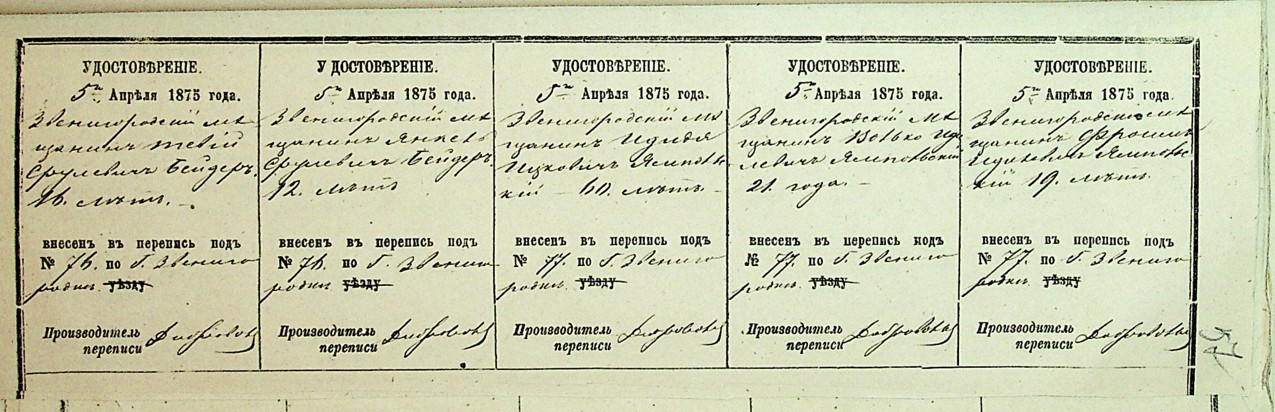 УДОСТОВѢРЕНІЕ.
5го Апрѣля 1875 года.
Звенигородскій мѣ
щанинъ Тевій
Срулевичъ Бейдеръ.
16. лѣтъ.
внесенъ въ перепись подъ
№ 76. по г. Звениго
родкѣ уѣзду
Производитель
переписи
УДОСТОВѢРЕНІЕ.
5го Апрѣля 1875 года.
Звенигородскій мѣ
щанинъ Янкель
Срулевичъ Бейдеръ
12. лѣтъ
внесенъ въ перепись подъ
№ 76. по г. Звениго
родкѣ уѣзду
Производитель
переписи
УДОСТОВѢРЕНІЕ.
5го Апрѣля 1875 года.
Звенигородскій мѣ
щанинъ
Ицковичъ Ямповс
кій 60. лѣтъ
внесенъ въ перепись подъ
№ 77. по г. Звениго
родкѣ уѣзду
Производитель
переписи
УДОСТОВѢРЕНІЕ.
5го Апрѣля 1875 года.
Звенигородскій мѣ
щанинъ Волько
Ямповскій
21. года.
внесенъ въ перепись подъ
№ 77. по г. Звениго
родкѣ уѣзду
Производитель
переписи
УДОСТОВѢРЕНІЕ.
5го Апрѣля 1875 года.
Звенигородскій мѣ
щанинъ Фроимъ
Ямповс
кій 19. лѣтъ.
внесенъ въ перепись подъ
№ 77. по г. Звениго
родкѣ уѣзду
Производитель
переписи